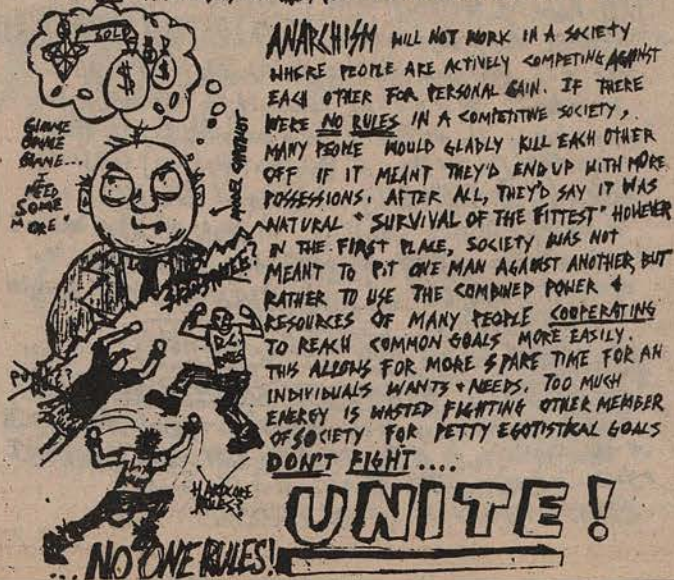 SOLD
$
$
GIMME
GIMME
GIMME...
I
NEED
SOME
MORE"
MODEL CAPITALIST
ANARCHISM WILL NOT WORK IN A SOCIETY
WHERE PEOPLE ARE ACTIVELY COMPETING AGAINST
EACH OTHER FOR PERSONAL GAIN. IF THERE
WERE NO RULES IN A COMPETITIVE SOCIETY,
MANY PEOPLE WOULD GLADLY KILL EACH OTHER
OFF IF IT MEANT THEY'D END UP WITH MORE
POSSESSIONS. AFTER ALL, THEY'D SAY IT WAS
NATURAL "SURVIVAL OF THE FITTEST" HOWEVER
IN THE FIRST PLACE, SOCIETY WAS NOT
MEANT TO PIT ONE MAN AGAINST ANOTHER, BUT
RATHER TO USE THE COMBINED POWER &
RESOURCES OF MANY PEOPLE COOPERATING
TO REACH COMMON GOALS MORE EASILY.
THIS ALLOWS FOR MORE SPARE TIME FOR AN
INDIVIDUALS WANTS + NEEDS. TOO MUCH
ENERGY IS WASTED FIGHTING OTHER MEMBER
OF SOCIETY FOR PETTY EGOTISTICAL GOALS
DON'T FIGHT....
UNITE!
HARDCORE
RULES?
... NO ONE RULES!